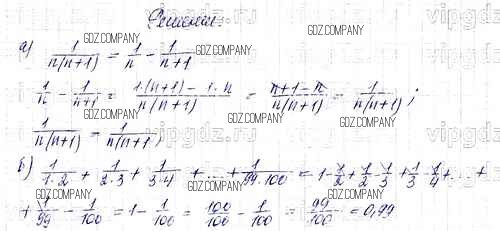 Решение.
а) 1/(n(n+1)) = 1/n - 1/(n+1)
1/n - 1/(n+1) = (1·(n+1) - 1·n)/(n(n+1)) = (n+1-n)/(n(n+1)) = 1/(n(n+1));
1/(n(n+1)) = 1/(n(n+1));
б) 1/(1·2) + 1/(2·3) + 1/(3·4) + ... + 1/(99·100) = 1 - 1/2 + 1/2 - 1/3 + 1/3 - 1/4 + ... +
+ 1/99 - 1/100 = 1 - 1/100 = 100/100 - 1/100 = 99/100 = 0,99
GDZ.COMPANY
GDZ.COMPANY
GDZ.COMPANY
GDZ.COMPANY
GDZ.COMPANY
GDZ.COMPANY
GDZ.COMPANY
GDZ.COMPANY
GDZ.COMPANY
GDZ.COMPANY
vipgdz.ru
vipgdz.ru
vipgdz.ru
vipgdz.ru